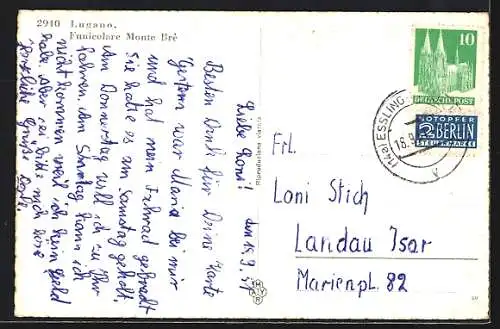 2940 Lugano.
Funicolare Monte Brè
den 15.9.51
Liebe Loni!
Besten Dank für Deine Karte
Gestern war Maria bei mir
und hat mein Fahrrad gebracht
Sie hatte es am Samstag geholt.
Am Donnerstag will ich zu Ihr
fahren. Am Sonntag kann ich
nicht kommen weil ich kein Geld
habe. Aber sei bitte nicht böse
Herzliche Grüße
Riproduzione vietata
10
DEUTSCHE POST
NOTOPFER
2 BERLIN
STEUERMARKE
(14a) ESSLINGEN
Frl.
Loni Stich
Landau Isar
Marienpl. 82